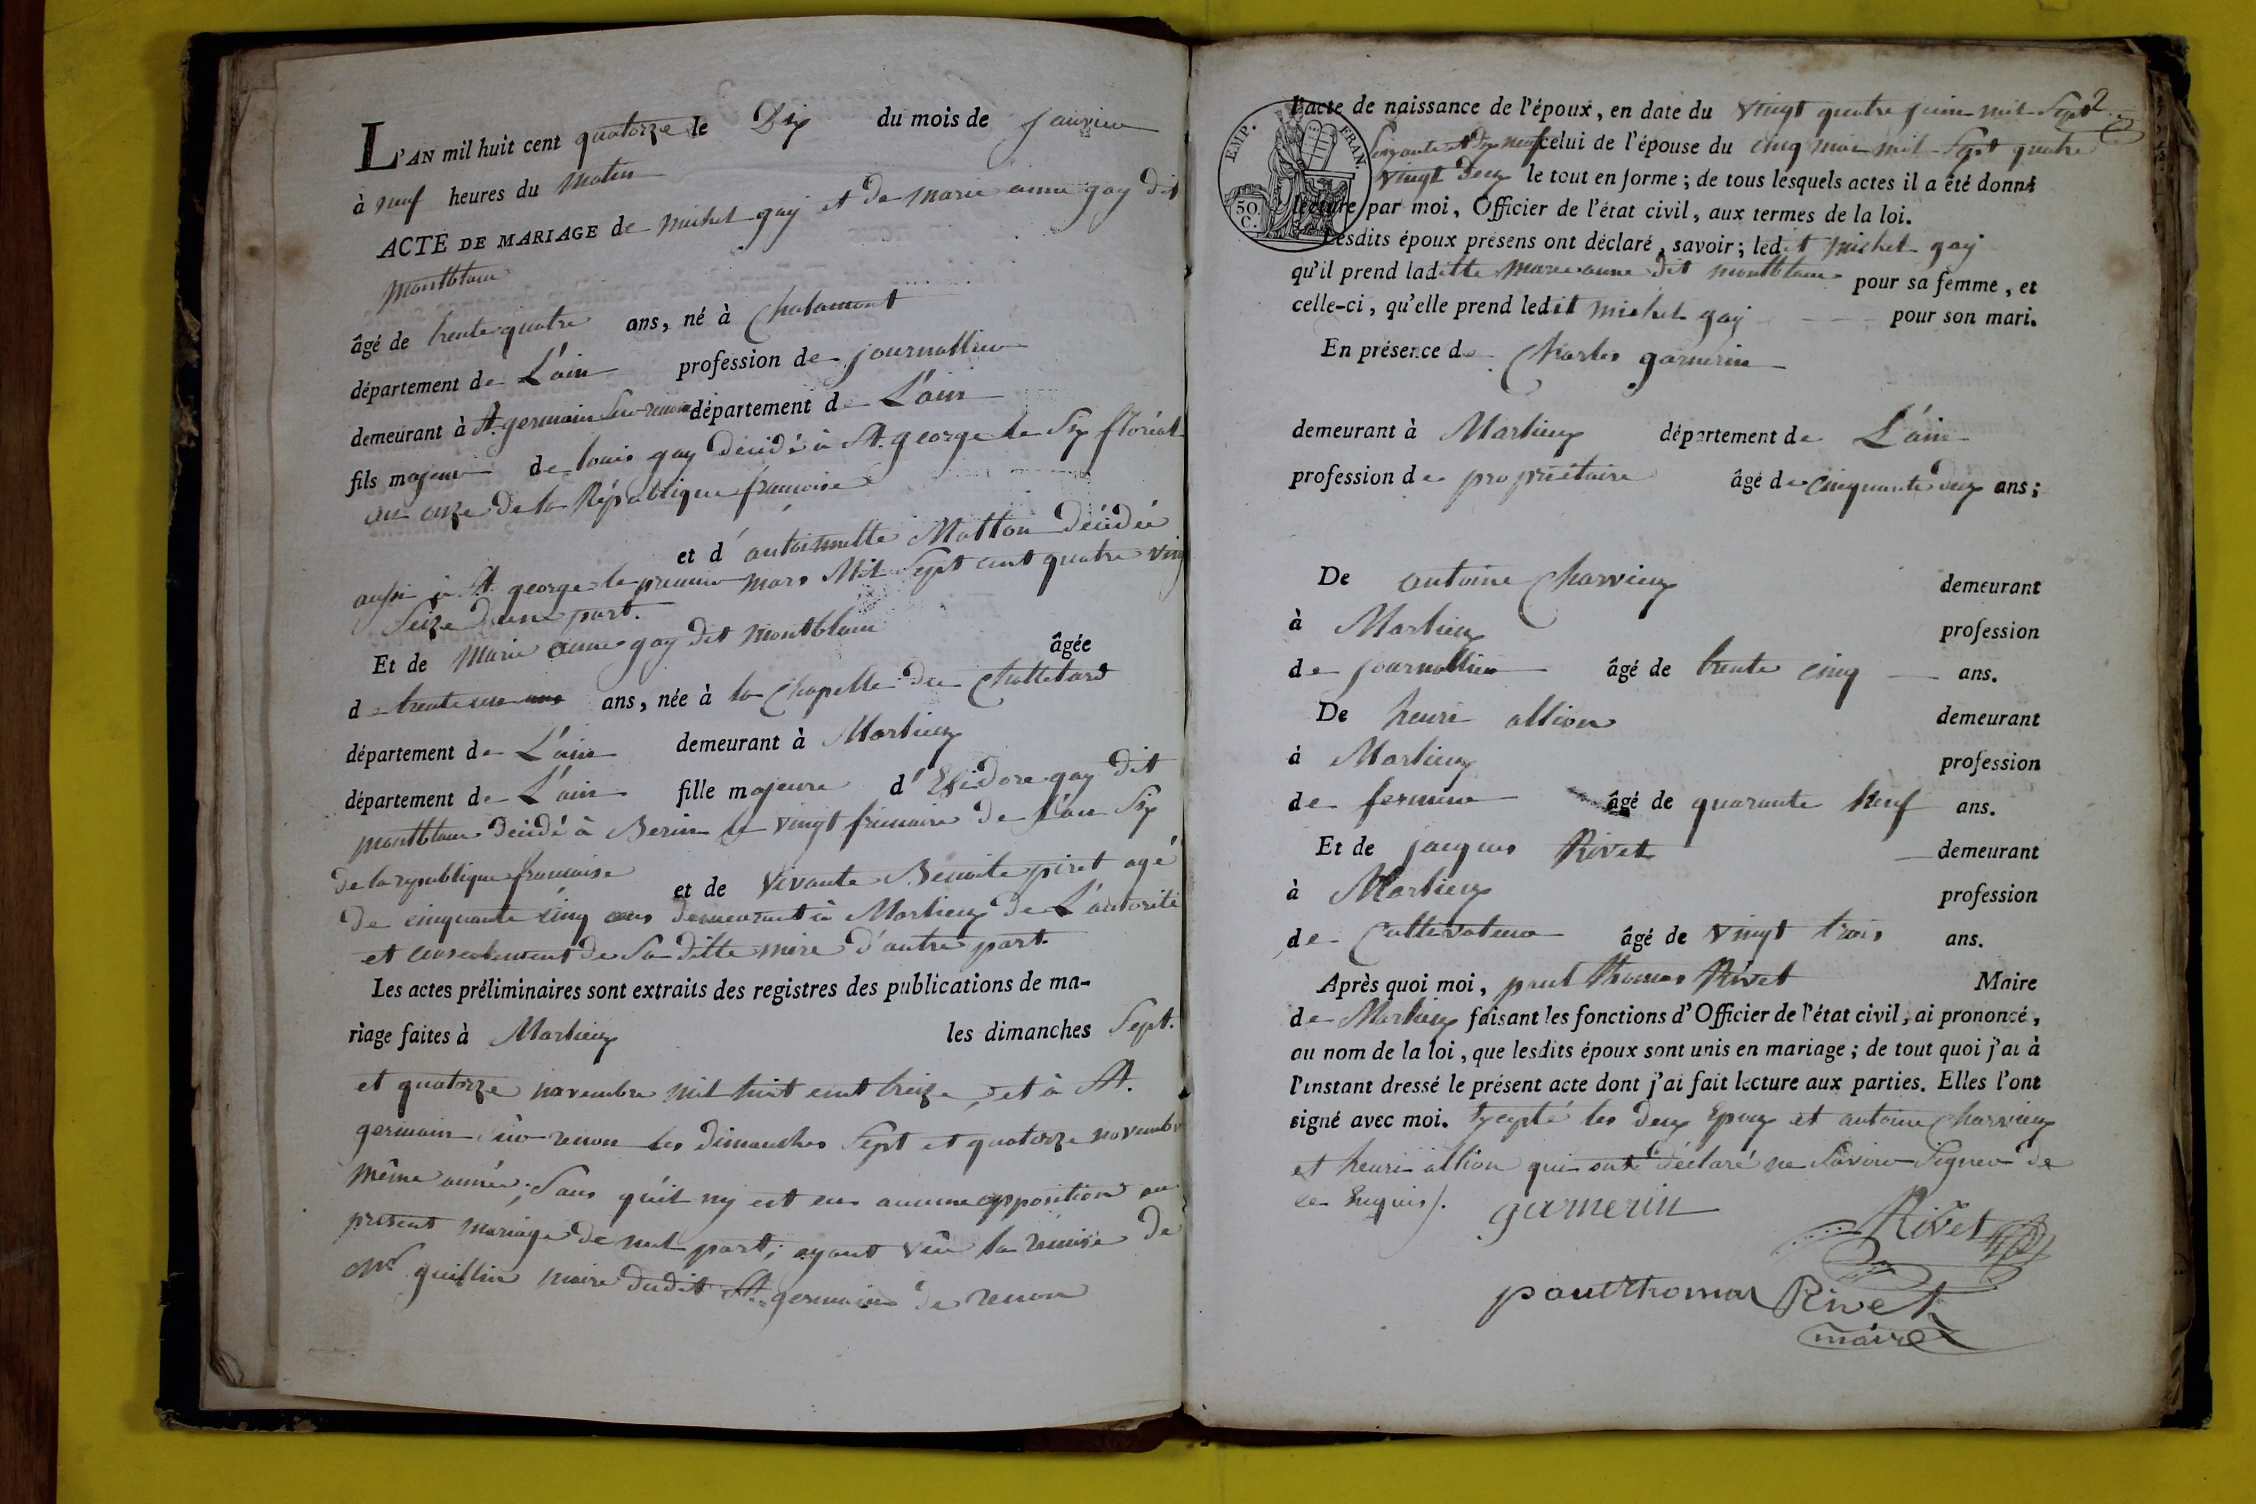 L'AN mil huit cent quatorze le Dix du mois de janvier
à neuf heures du matin
ACTE DE MARIAGE de michel gay et de marie anne gay dit
montblanc
âgé de trente quatre ans, né à Chalamont
département de L'ain profession de journallier
demeurant à St. germain sur renon département de L'ain
fils majeur de louis gay décédé à St. george le Six floréal
an onze de la République francoise
et d'antoinette Matton décédée
aussi à St. george le premier mars Mil Sept cent quatre ving
Seize d'une part.
Et de marie anne gay dit montblanc âgée
de trente un ans, née à la Chapelle du Chattelard
département de L'ain demeurant à Marlieux
département de L'ain fille majeure d' Isidore gay dit
montblanc décédé à le vingt frimaire de l'an Six
de la republique francoise et de vivante Benoite piret agé
de cinquante cinq ans demeurant à Marlieux de L'autorité
et consentement de Sa ditte mère d'autre part.
Les actes préliminaires sont extraits des registres des publications de ma-
riage faites à Marlieux les dimanches Sept.
et quatorze novembre mil huit cent treize, et à St.
germain sur renon les dimanches Sept et quatorze novembre
même année; Sans qu'il ny est eu aucune opposition au
présent mariage de nul part; ayant vû la remise de
Mr. guillin maire dudit St. germain de renon
2
EMP. FRAN.
50. C.
l'acte de naissance de l'époux, en date du vingt quatre juin mil Sept
Soixante et dix neuf celui de l'épouse du cinq mai mil Sept quatre
vingt deux le tout en forme; de tous lesquels actes il a été donné
lecture par moi, Officier de l'état civil, aux termes de la loi.
Lesdits époux présens ont déclaré, savoir; ledit michel gay
qu'il prend laditte marie anne dit montblanc pour sa femme, et
celle-ci, qu'elle prend ledit michel gay pour son mari.
En présence de Charles garnerin
demeurant à Marlieux département de L'ain
profession de propriétaire âgé de cinquante deux ans;
De antoine Charvieux demeurant
à Marlieux profession
de journallier âgé de trente cinq ans.
De henri allion demeurant
à Marlieux profession
de fermier âgé de quarante neuf ans.
Et de jacques Rivet demeurant
à Marlieux profession
de Cultivateur âgé de vingt trois ans.
Après quoi moi, paul thomas Rivet Maire
de Marlieux faisant les fonctions d'Officier de l'état civil, ai prononcé,
au nom de la loi, que lesdits époux sont unis en mariage; de tout quoi j'ai à
l'instant dressé le présent acte dont j'ai fait lecture aux parties. Elles l'ont
signé avec moi. Excepté les deux Epoux et antoine Charvieux
et henri allion qui ont déclaré ne Savoir Signer de
ce Enquis /. garnerin
Rivet
paul thomas Rivet
maire